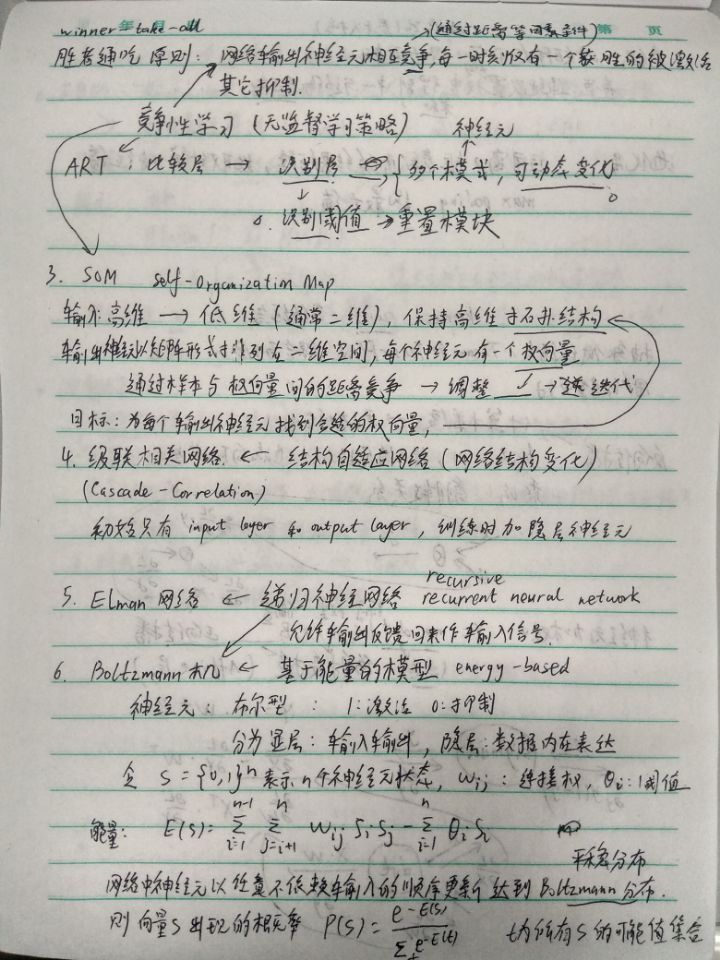 winner take-all 年 月 日 (通过距离等因素条件) 第 页
胜者通吃原则: 网络输出神经元相互竞争,每一时刻仅有一个获胜的被激活
其它抑制.
竞争性学习 (无监督学习策略) 神经元
ART: 比较层 → 识别层 → { 多个模式, 可动态变化。
识别阈值 → 重置模块
3. SOM Self-Organization Map
输入: 高维 → 低维 (通常二维), 保持高维 拓扑结构
输出神经元以矩阵形式排列在二维空间, 每个神经元有一个权向量
通过样本与权向量间的距离竞争 → 调整 → 迭代
目标: 为每个输出神经元找到合适的权向量,
4. 级联相关网络 ← 结构自适应网络 (网络结构变化)
(Cascade-Correlation)
初始只有 input layer 和 output layer, 训练时加隐层神经元
recursive
5. Elman 网络 ← 递归神经网络 recurrent neural network
允许输出反馈回来作输入信号.
6. Boltzmann 机 ← 基于能量的模型 energy-based
神经元: 布尔型 : 1: 激活 0: 抑制
分为显层: 输入输出, 隐层: 数据内在表达
令 S = {0,1}ⁿ 表示 n 个神经元状态, wij : 连接权, θi: 阈值
能量: E(s) = Σ_{i=1}^{n-1} Σ_{j=i+1}^{n} wij Si Sj - Σ_{i=1}^{n} θi Si
平稳分布
网络中神经元以任意不依赖输入的顺序更新 达到 Boltzmann 分布.
则向量 S 出现的概率 P(S) = e^{-E(s)} / Σ_t e^{-E(t)} t为所有 S 的可能值集合